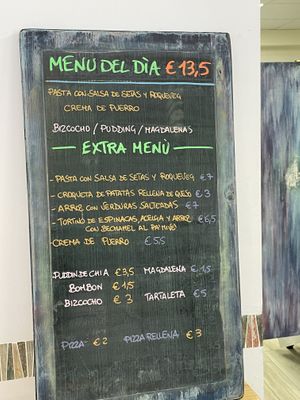 MENU DEL DÌA € 13,5
PASTA CON SALSA DE SETAS Y ROQUEVEG
CREMA DE PUERRO
BIZCOCHO / PUDDING / MAGDALENAS
EXTRA MENÙ
- PASTA CON SALSA DE SETAS Y ROQUEVEG € 7
- CROQUETA DE PATATAS RELLENA DE QUESO € 3
- ARROZ CON VERDURAS SALTEADAS € 7
- TORTINO DE ESPINACAS, ACELGA Y ARROZ € 6,5
CON BECHAMEL AL
CREMA DE PUERRO € 5,5
PUDDIN DE CHIA € 3,5 MAGDALENA € 1,5
BOMBON € 1,5
BIZCOCHO € 3 TARTALETA € 5
PIZZA € 2 PIZZA RELLENA € 3